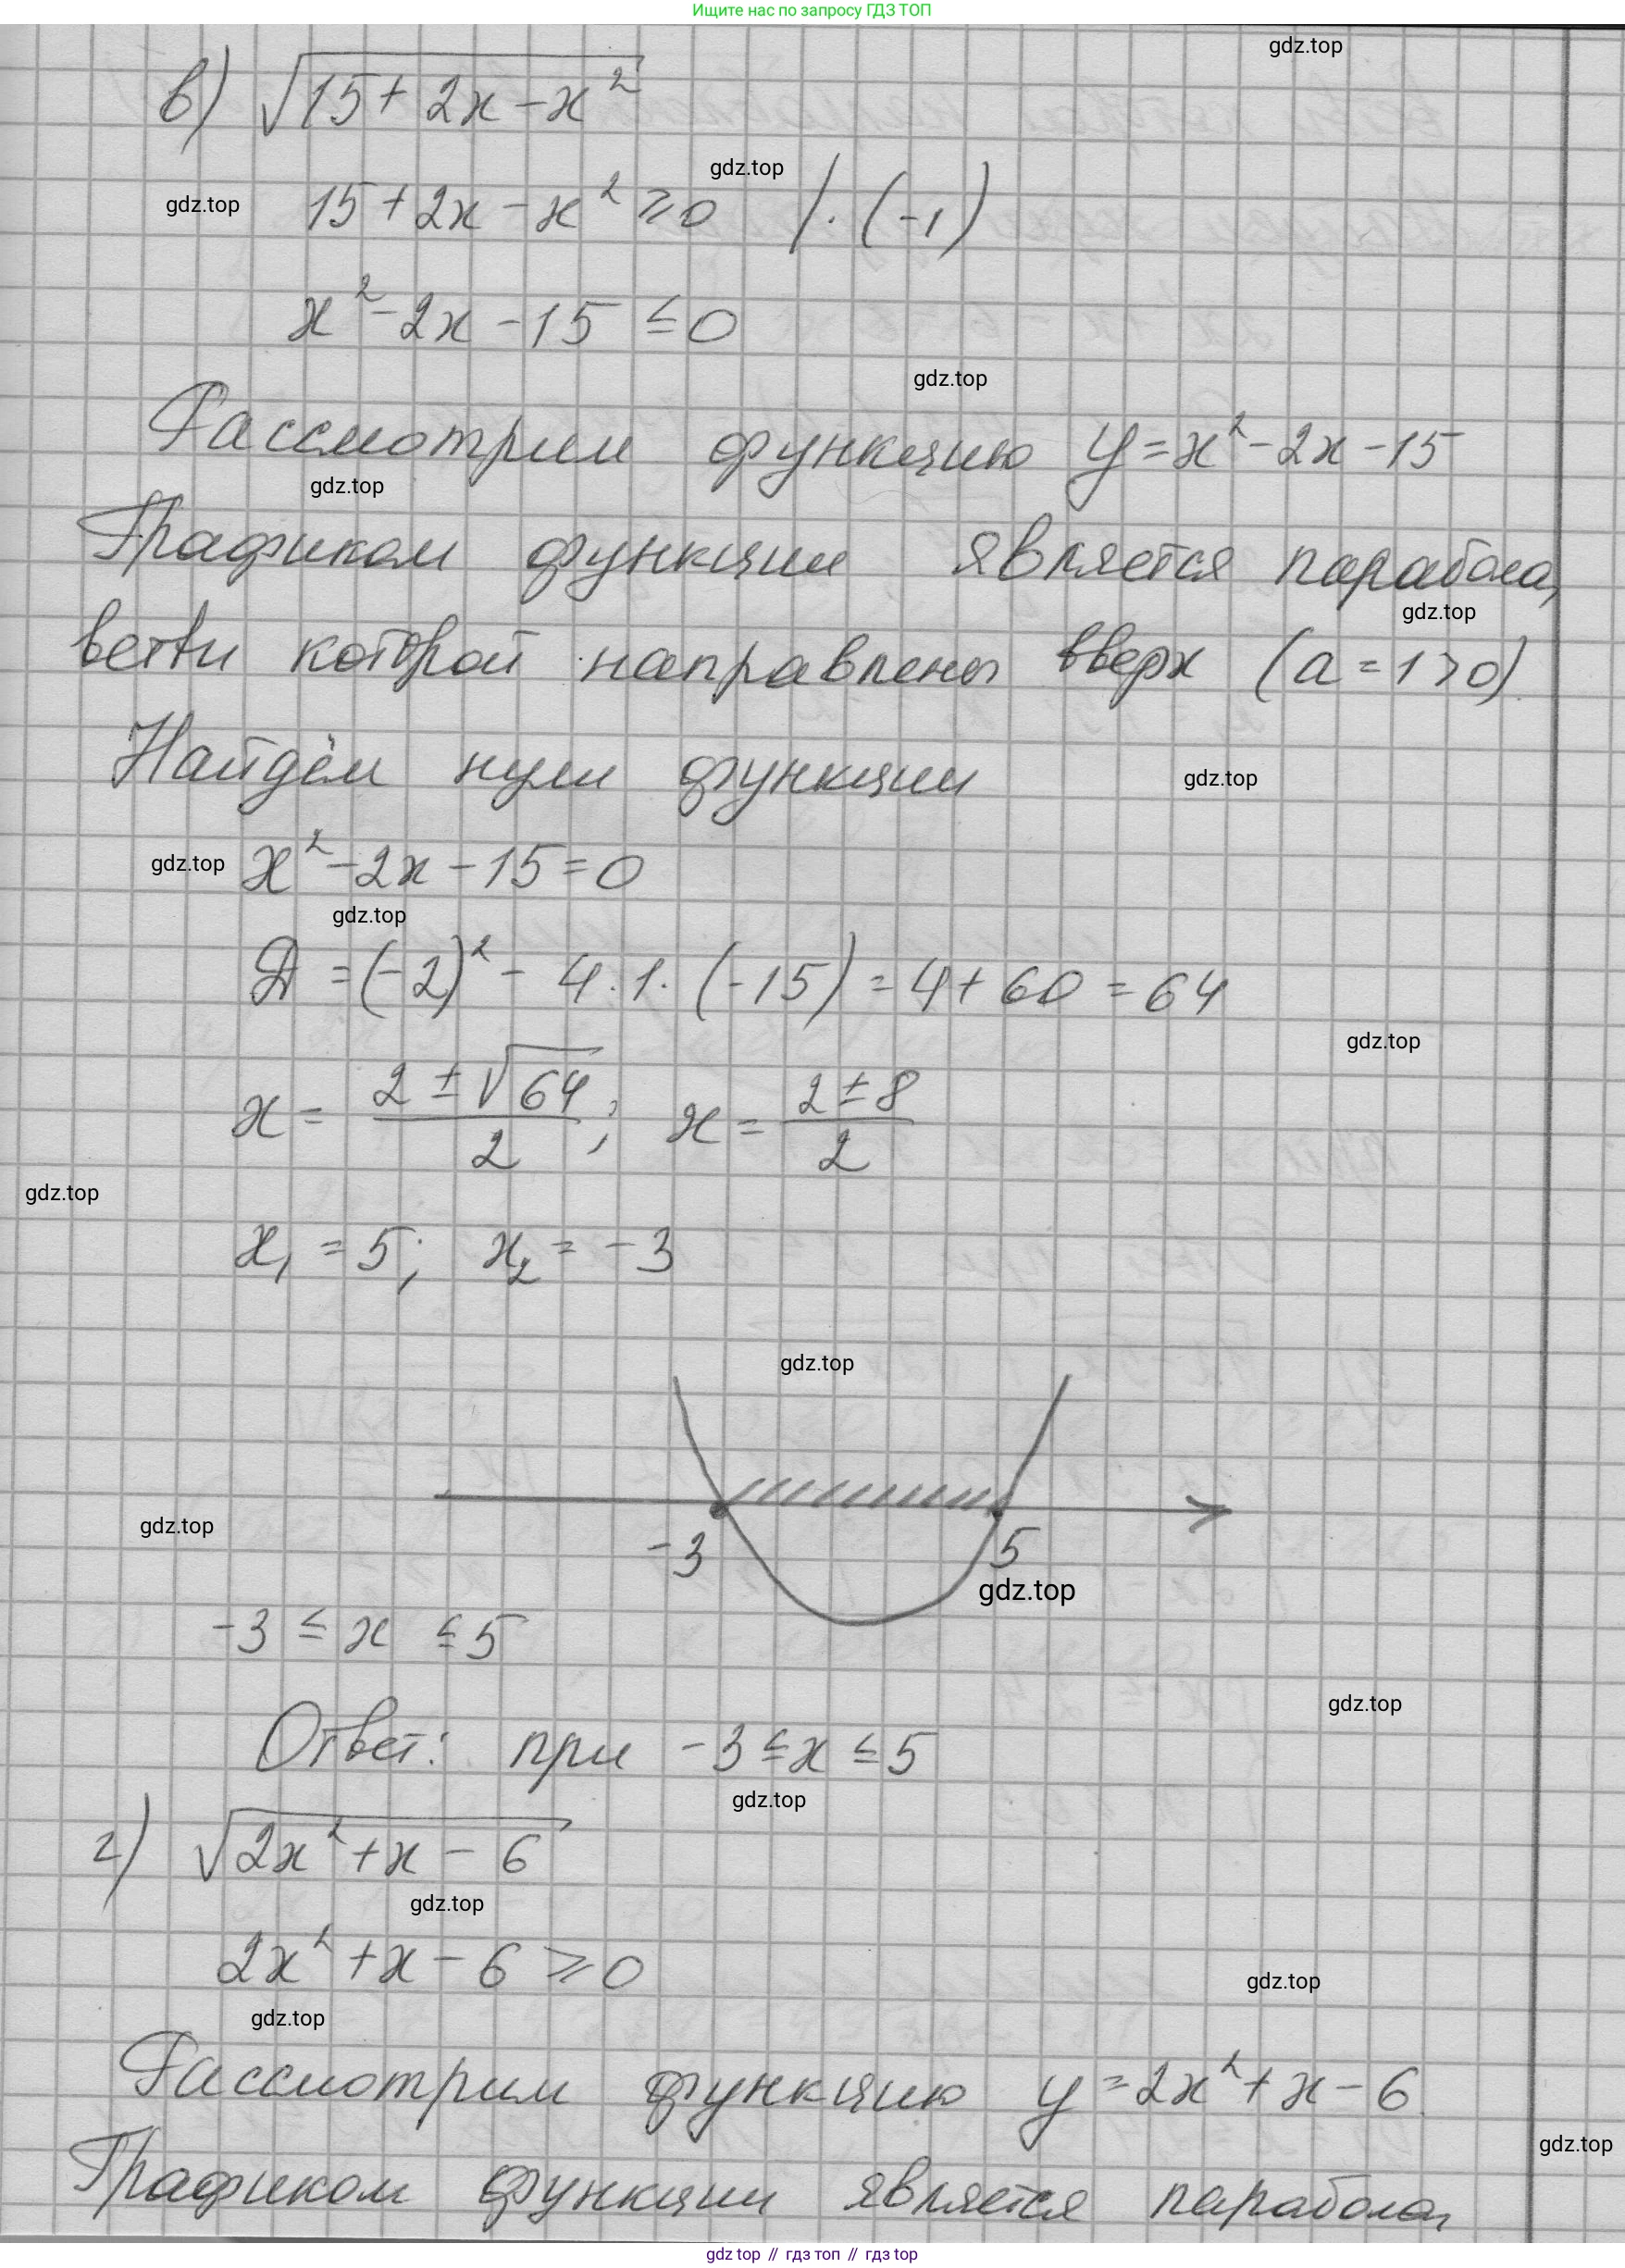 Ищите нас по запросу ГДЗ ТОП
gdz.top
в) √(15+2x-x²)
gdz.top
gdz.top
15+2x-x²⩾0 /·(-1)
x²-2x-15 ≤0
gdz.top
Рассмотрим функцию y=x²-2x-15
gdz.top
Графиком функции является парабола,
gdz.top
ветви которой направлены вверх (a=1>0).
Найдём нули функции
gdz.top
gdz.top
x²-2x-15=0
gdz.top
Д=(-2)²- 4·1·(-15)=4+60=64
gdz.top
x= (2±√64)/2; x= (2±8)/2
gdz.top
x₁=5; x₂=-3
gdz.top
gdz.top
-3 5
gdz.top
-3 ≤ x ≤5
gdz.top
Ответ: при -3≤x≤5
gdz.top
г) √(2x²+x-6)
gdz.top
2x²+x-6⩾0
gdz.top
gdz.top
Рассмотрим функцию y=2x²+x-6.
gdz.top
Графиком функции является парабола,
gdz.top // гдз топ // гдз top